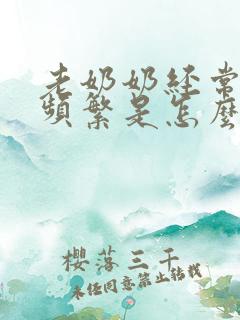 老奶奶经常
频繁是怎麽
樱落三千
未经同意禁止转载